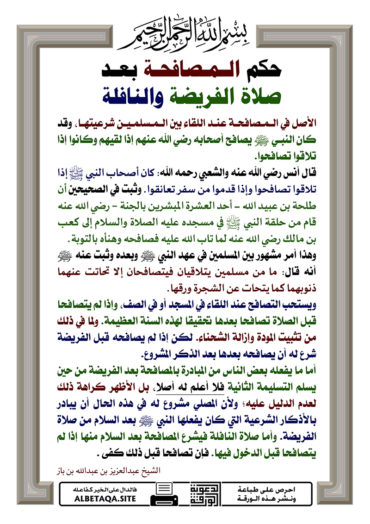 بسم الله الرحمن الرحيم
حكم المصافحة بعد
صلاة الفريضة والنافلة
الأصل في المصافحة عند اللقاء بين المسلمين شرعيتها، وقد
كان النبي ﷺ يصافح أصحابه رضي الله عنهم إذا لقيهم وكانوا إذا
تلاقوا تصافحوا.
قال أنس رضي الله عنه والشعبي رحمه الله: كان أصحاب النبي ﷺ إذا
تلاقوا تصافحوا وإذا قدموا من سفر تعانقوا. وثبت في الصحيحين أن
طلحة بن عبيد الله - أحد العشرة المبشرين بالجنة - رضي الله عنه
قام من حلقة النبي ﷺ في مسجده عليه الصلاة والسلام إلى كعب
بن مالك رضي الله عنه لما تاب الله عليه فصافحه وهنأه بالتوبة.
وهذا أمر مشهور بين المسلمين في عهد النبي ﷺ وبعده وثبت عنه ﷺ
أنه قال: ما من مسلمين يتلاقيان فيتصافحان إلا تحاتت عنهما
ذنوبهما كما يتحات عن الشجرة ورقها.
ويستحب التصافح عند اللقاء في المسجد أو في الصف، وإذا لم يتصافحا
قبل الصلاة تصافحا بعدها تحقيقا لهذه السنة العظيمة. ولما في ذلك
من تثبيت المودة وإزالة الشحناء. لكن إذا لم يصافحه قبل الفريضة
شرع له أن يصافحه بعدها بعد الذكر المشروع.
أما ما يفعله بعض الناس من المبادرة بالمصافحة بعد الفريضة من حين
يسلم التسليمة الثانية فلا أعلم له أصلا، بل الأظهر كراهة ذلك
لعدم الدليل عليه؛ ولأن المصلي مشروع له في هذه الحال أن يبادر
بالأذكار الشرعية التي كان يفعلها النبي ﷺ بعد السلام من صلاة
الفريضة. وأما صلاة النافلة فيشرع المصافحة بعد السلام منها إذا لم
يتصافحا قبل الدخول فيها، فإن تصافحا قبل ذلك كفى.
الشيخ عبدالعزيز بن عبدالله بن باز
احرص على طباعة
ونشر هذه الورقة
الدعوية
الورقة
فالدال على الخير كفاعله
ALBETAQA.SITE